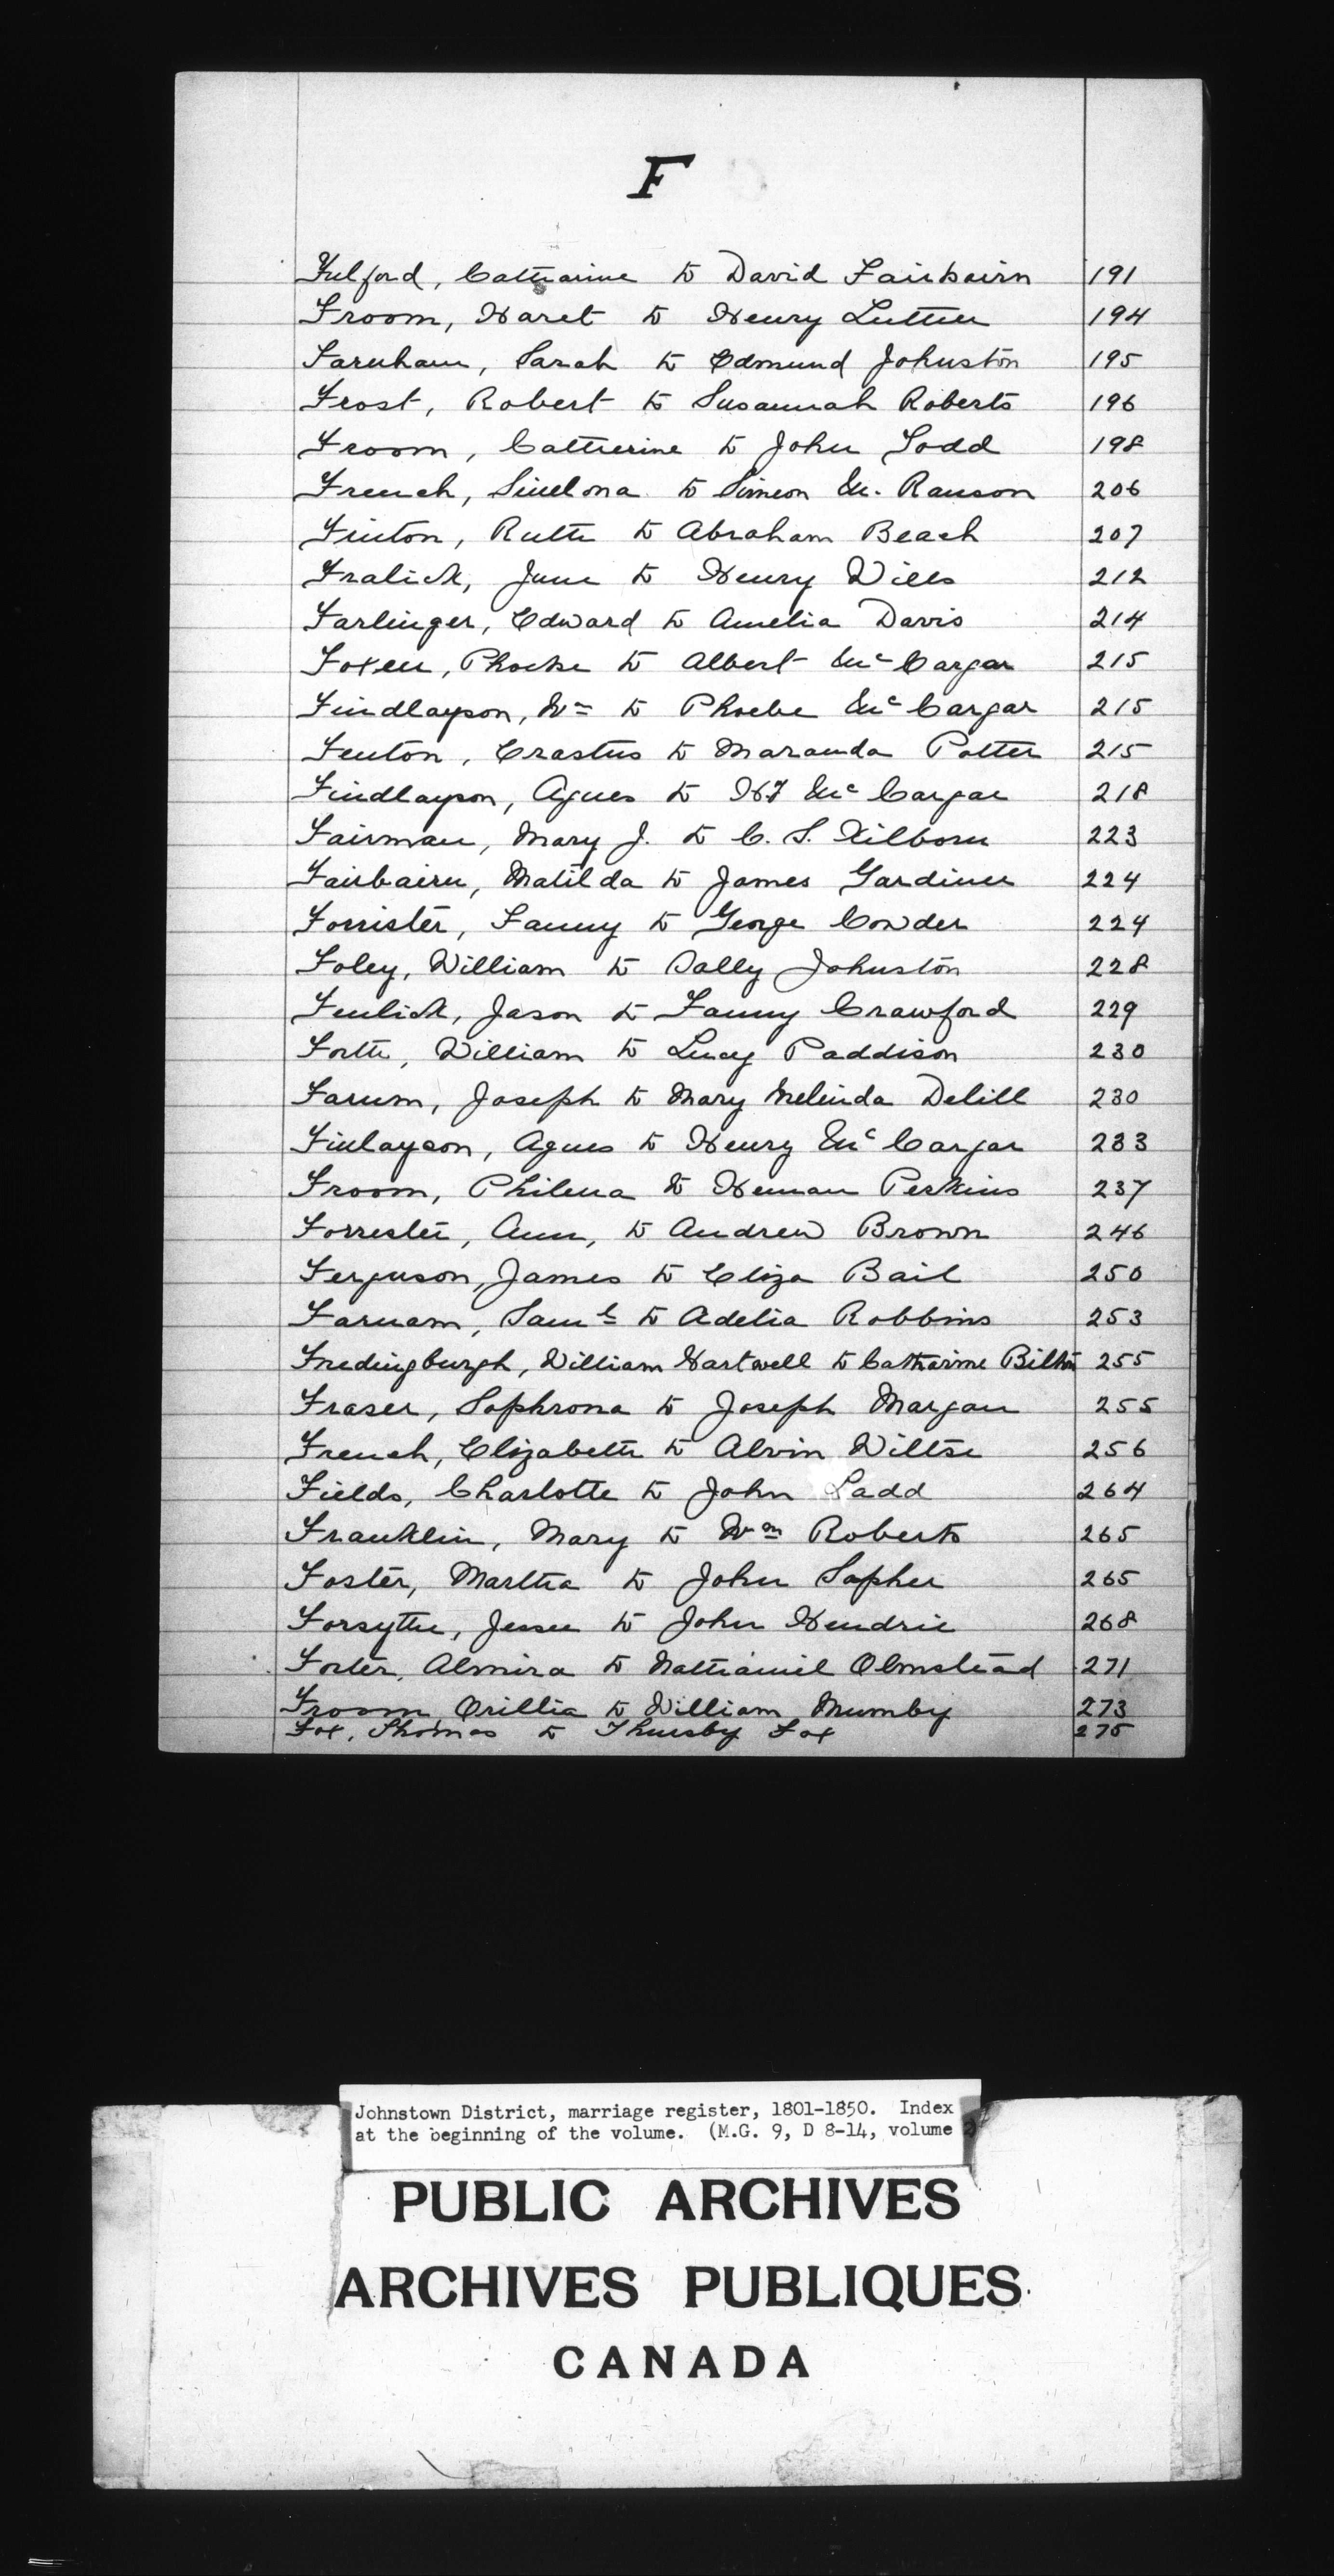 F
Fulford, Catharine to David Fairbairn 191
Froom, Haret to Henry Luther 194
Farnham, Sarah to Edmund Johnston 195
Frost, Robert to Susannah Roberts 196
Froom, Catherine to John Todd 198
French, to Simeon M. Ranson 206
Finton, Ruth to Abraham Beach 207
Fralick, June to Henry Wills 212
Farlinger, Edward to Amelia Davis 214
Foxen, Phoebe to Albert McCargar 215
Findlayson, Wm to Phoebe McCargar 215
Fenton, Erastus to Maranda Potter 215
Findlayson, Agnes to McCargar 218
Fairman, Mary J. to C. S. Kilborn 223
Fairbairn, Matilda to James Gardiner 224
Forrister, Fanny to George Cowder 224
Foley, William to Sally Johnston 228
Fenlick, Jason to Fanny Crawford 229
Forth, William to Lucy Paddison 230
Farum, Joseph to Mary Melinda Delill 230
Finlayson, Agnes to Henry McCargar 233
Froom, Philena to Heman Perkins 237
Forrester, Ann, to Andrew Brown 246
Ferguson, James to Eliza Bail 250
Farnam, Saml to Adelia Robbins 253
Fredingburgh, William Hartwell to Catharine Bilton 255
Fraser, Sophrona to Joseph Margan 255
French, Elizabeth to Alvin Wiltse 256
Fields, Charlotte to John Ladd 264
Franklin, Mary to Wm Roberts 265
Foster, Martha to John Sopher 265
Forsythe, Jessee to John Hendrie 268
Foster, Almira to Nathaniel Olmstead 271
Froom Orillia to William Mumby 273
Fox, Thomas to Thursby Fox 275
Johnstown District, marriage register, 1801-1850. Index
at the beginning of the volume. (M.G. 9, D 8-14, volume 2
PUBLIC ARCHIVES
ARCHIVES PUBLIQUES
CANADA